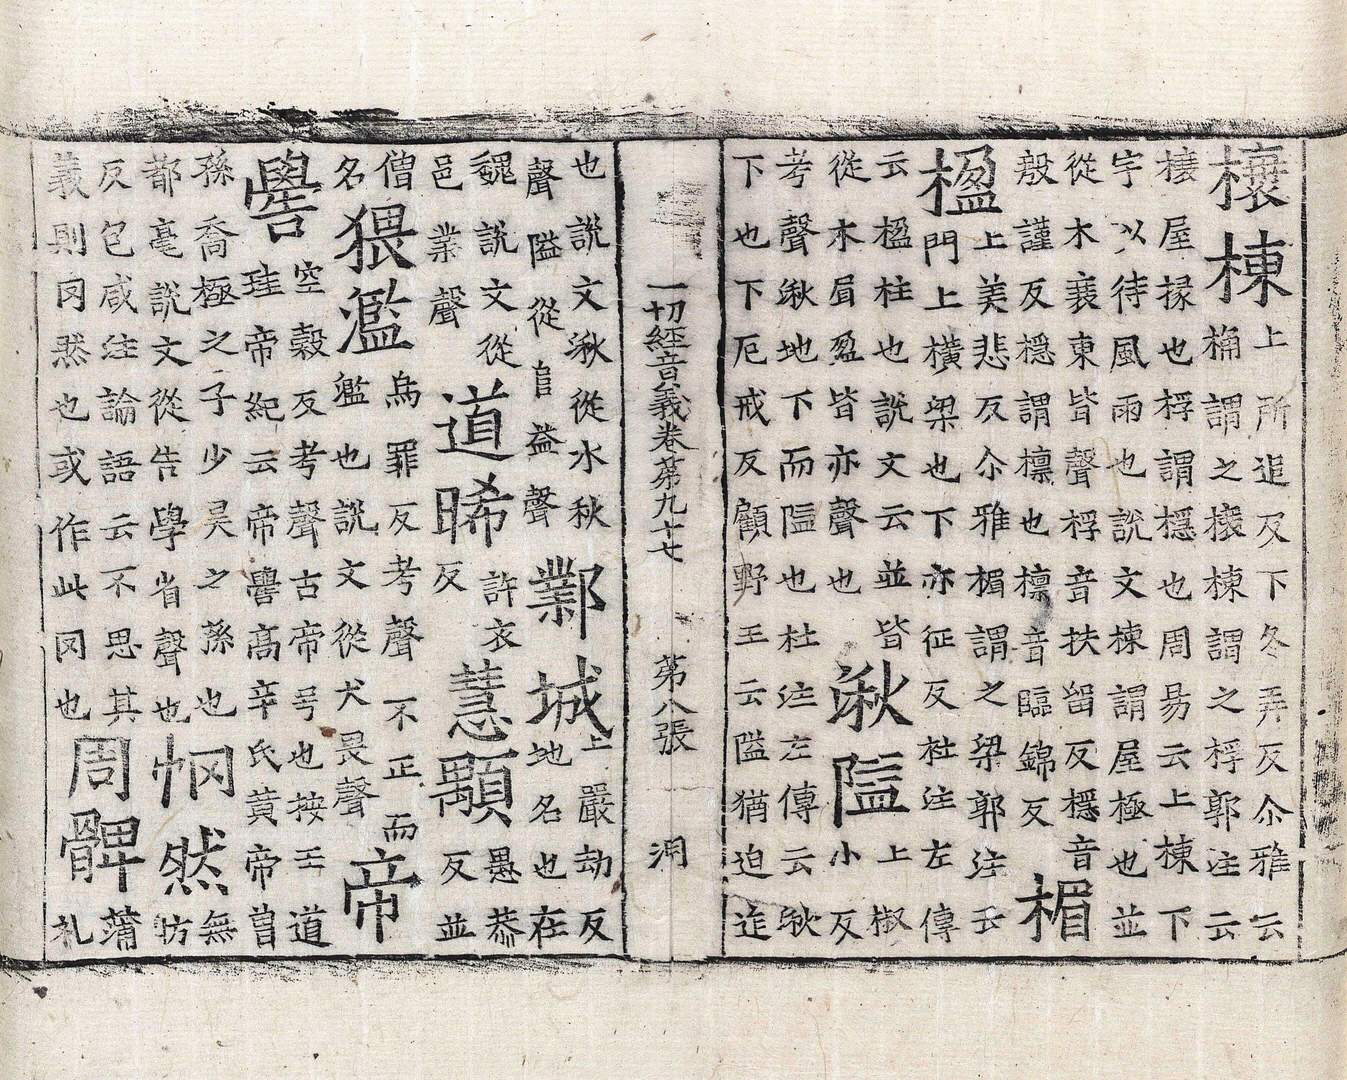 榱棟
上所追反下冬弄反尒雅云
桷謂之榱棟謂之桴郭注云
榱屋椽也桴謂檼也周易云上棟下
宇以待風雨也說文棟謂屋極也並
從木衰東皆聲桴音扶留反檼音
殷謹反檼謂檁也檁音臨錦反
楣
楹
上美悲反尒雅楣謂之梁郭注云
門上橫梁也下亦征反杜注左傳
云楹柱也說文云並皆
從木眉盈皆亦聲也
湫隘
上椒
小反
考聲湫地下而隘也杜注左傳云湫
下也下厄戒反顧野王云隘猶迫迮
一切經音義卷第九十七 第八張 洞
也說文湫從水秋
聲隘從𨸏益聲
鄴城
上嚴劫反
地名也在
魏說文從
邑業聲
道晞
許衣
反
慧顒
愚恭
反並
僧
名
猥濫
烏罪反考聲不正而
濫也說文從犬畏聲
帝
嚳
空穀反考聲古帝号也按王道
珪帝紀云帝嚳高辛氏黃帝曾
孫喬極之子少昊之孫也
都毫說文從告學省聲也
惘然
無
昉
反包咸注論語云不思其
義則罔然也或作此罔也
周髀
蒲
礼